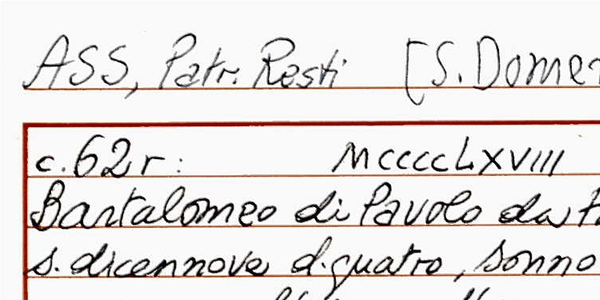 ASS, Patr. Resti [S. Domen
c. 62r:
MCCCCLXVIII
Bartalomeo di Pavolo da
s. dicennove d. quatro, sonno